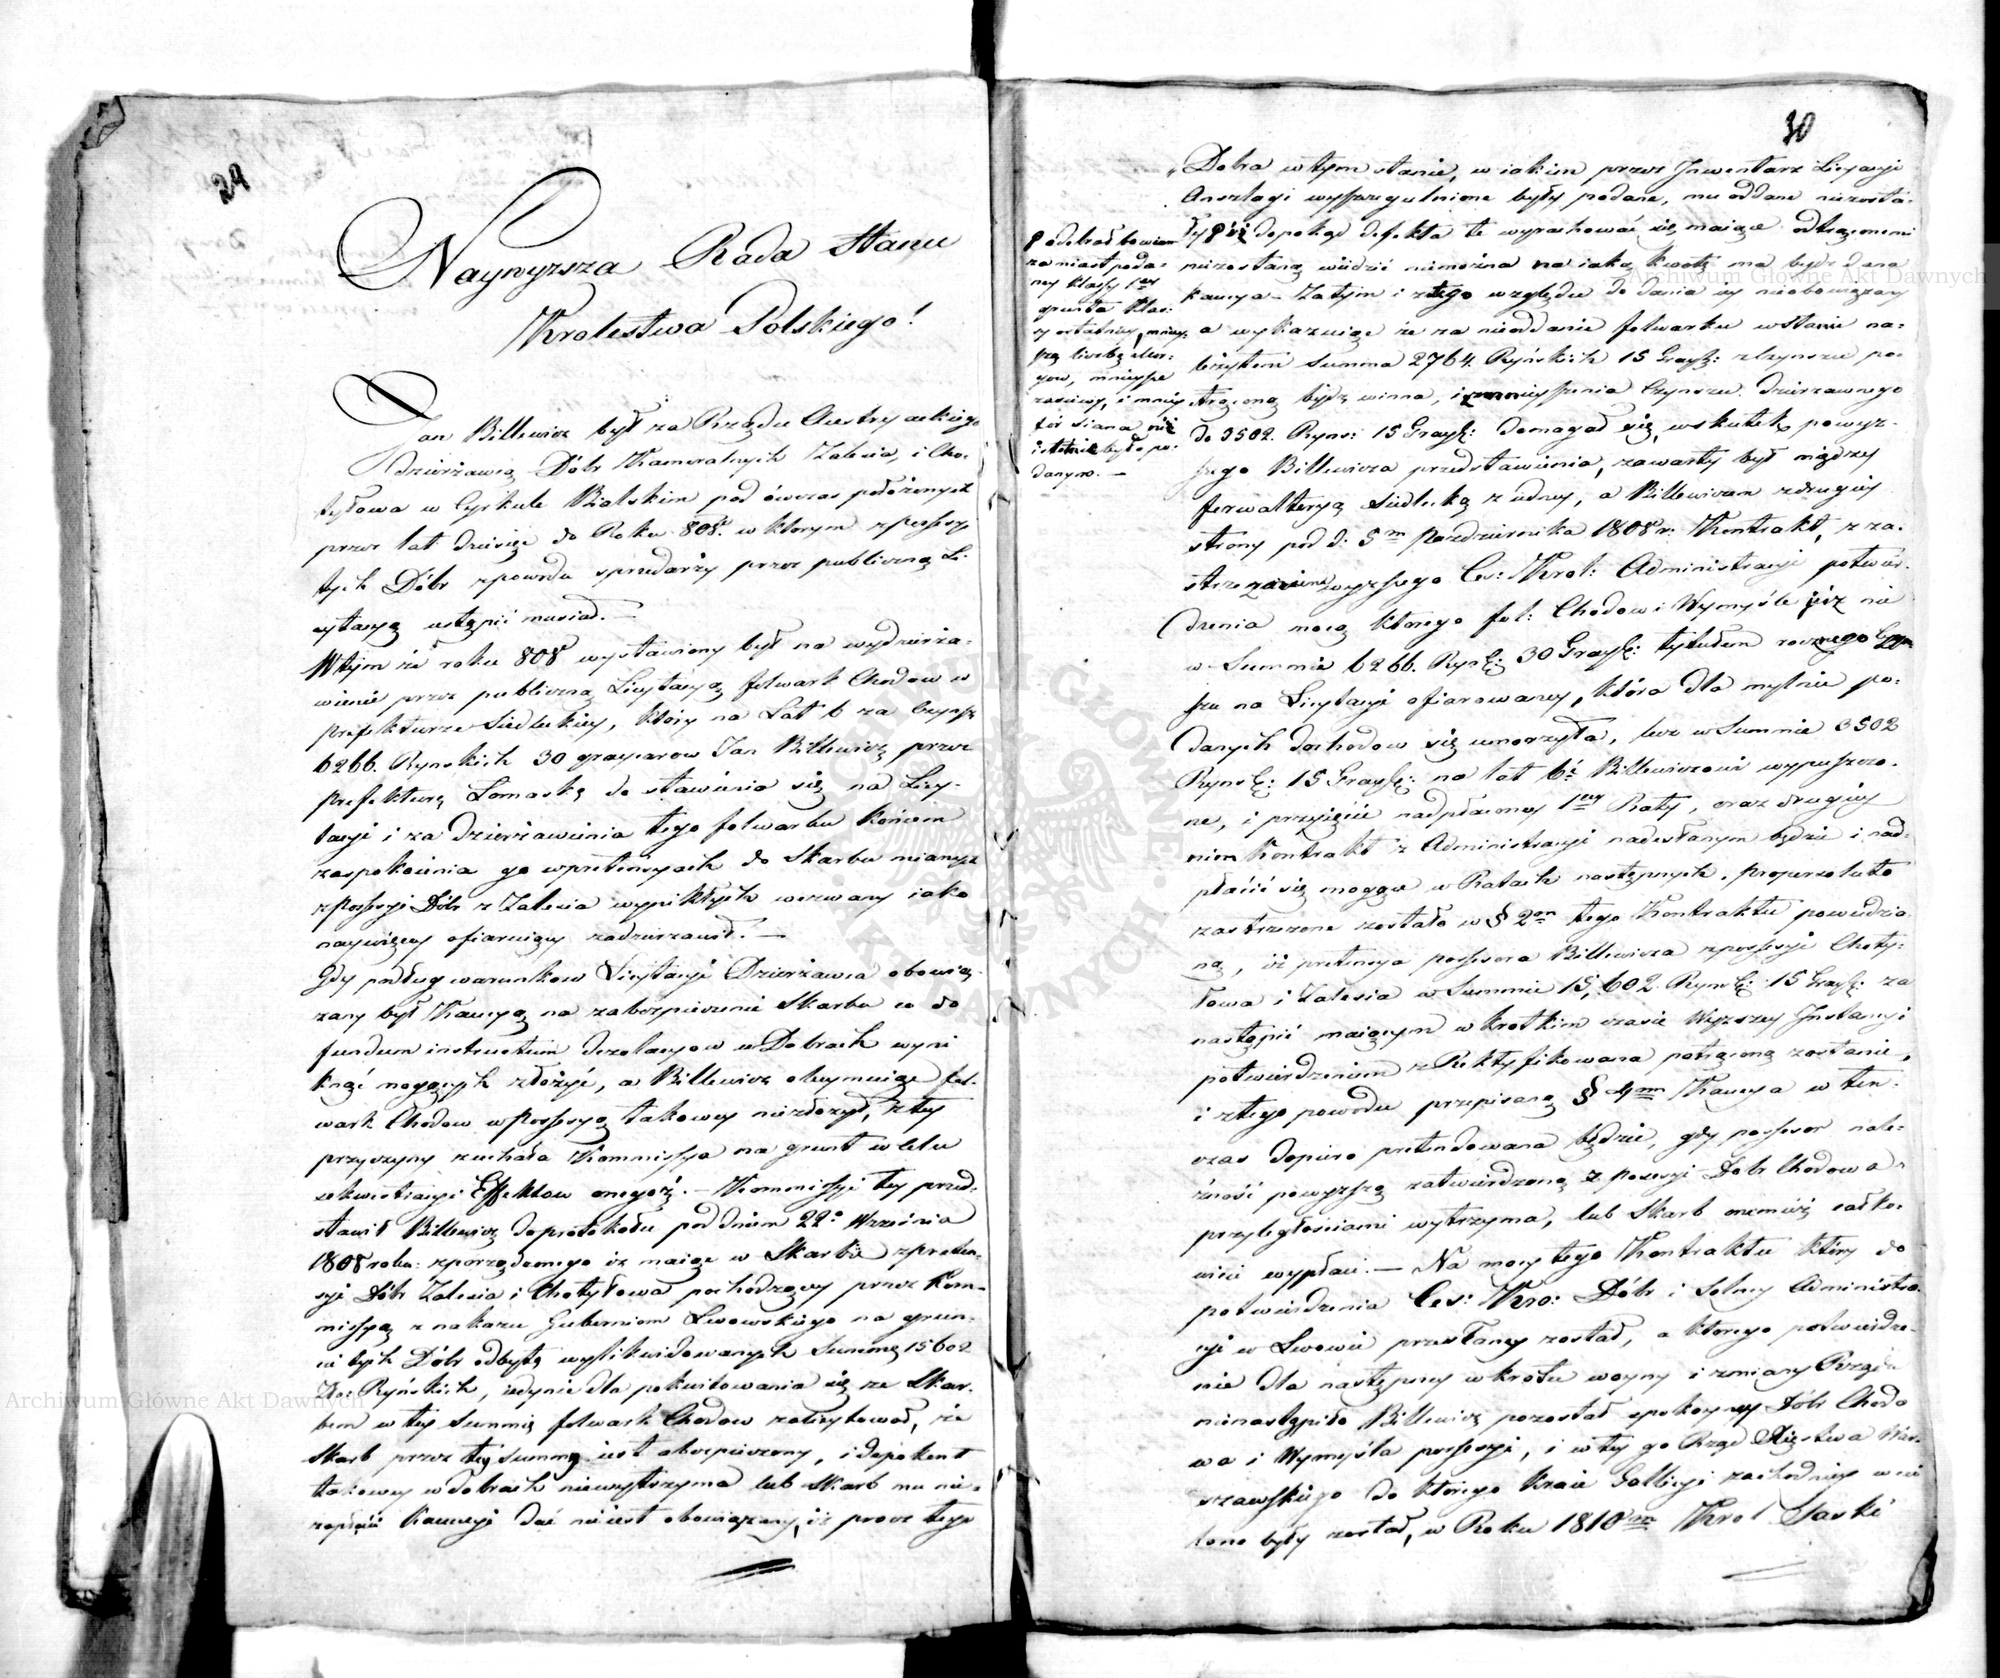 29
Naywyzsza Rada Stanu
Krolestwa Polskiego!
Jan Billewicz był za Rządu Austryackiego
dzierżawcą Dóbr Kameralnych Zalesia, i Cho-
tyłowa w Cyrkule Bialskim pod ówczas położonych
przez lat dziesięć do Roku 808. w ktorym z possessyi
tych Dóbr z powodu sprzedarzy przez publiczną Li-
cytacyą ustąpić musiał. —
W tym że roku 808 wystawiony był na wydzierża-
wienie przez publiczną Licytacyą folwark Chodow w
prefekturze Siedleckiey, który na Lat 6 za Czynsz
6266. Rynskich 30 graycarow Jan Billewicz, przez
prefekturę Lomaską do stawienia się na Licy-
tacyi i za dzierżawienia tego folwarku końcem
zaspokoienia go w pretensyach do Skarbu mianych
z possessyi Dóbr z Zalesia wynikłych wezwany iako
naywięcey ofiaruiący zadzierżawił. —
Gdy podług warunkow Licytacyi Dzierżawca obowią-
zany był Kaucyą na zabezpieczenie Skarbu co do
fundum instructum dezolacyow w Dobrach wyni
knąć mogących złożyć, a Billewicz obeymuiąc fol-
wark Chodow w Possessyą takowey niezłożył, z tey
przyczyny ziechała Kommissya na grunt w celu
sekwestracyi Effektow onegoż. — Kommissyi tey przed-
stawił Billewicz do protokołu pod dniem 22° Września
1808 roku: zporządzonego iż maiąc w Skarbie z preten-
syi Dóbr Zalesia i Chotyłowa pochodzącey przez Kom-
missyą z nakazu Gubernium Lwowskiego na grun-
cie tych Dóbr odbytą wylikwidowanych Summę 15602
Zł: Ryńskich, iedynie dla pokwitowania się ze Skar-
bem w tey Summie folwark Chodow zalicytował, że
Skarb przez tę Summę iest obezpieczony, i dopokend
takowey w dobrach niewytrzyma lub Skarb mu nie-
zapłaci Kaucyi dać nie iest obowiązany, iż procz tego
30
Dobra w tym stanie, w iakim przez Inwentarz Licytacyi
Anszlagi wyszczegulnione były podane, mu oddane niezosta-
ły iż dopokąd defekta te wyrachować się maiące odtrąconemi
niezostaną wiedzić niemożna na iaką kwotę ma bydź dana
kaucya — Zatym i z tego względu do dania iey nieobowiązany
a wykazuiąc że za nieoddanie folwarku w stanie na-
leżytem Summa 2764. Ryńskich 15 Grayc: z Czynszu po-
trąconą bydź winna, i zmnieyszenia Czynszu dzierżawnego
do 3502. Ryns: 15 Grayc: domagał się, w skutek powyz-
szego Billewicza przedstawienia, zawarty był między
ferwalteryą Siedlecką z iedney, a Billewiczem z drugiey
strony pod d: 5m Pazdziernika 1808 r: Kontrakt, z za-
strzezeniem wyzszego Ces: Krol: Administracyi potwier-
dzenia mocą ktorego fol: Chodow i Wymyśle iż nie
w Summie 6266. Ryńs: 30 Grayc: tytułem rocznego Czyn
szu na Licytacyi ofiarowaney, ktora dla mylnie po-
danych dochodow się umorzyła, lecz w Summie 3502
Ryns: 15 Grayc: na lat 6ć Billewiczowi wypuszczo-
ne, i przyięcie nadpłaconey 1szey Raty, oraz drugiey
nim Kontrakt z Administracyi nadesłanym będzie i nad-
płacić się mogące w Ratach następnych. Proporcio tuto
zastrzeżone zostało w § 2em tego Kontraktu powiedzia
ną, iż pretensya possessora Billewicza z possessyi Choty-
łowa i Zalesia w Summie 15,602 Ryns: 15 Grayc: za
nastąpić maiącym w krotkim czasie Wyzszey Instancyi
potwierdzeniem z Rektyfikowana potrąconą zostanie,
i z tego powodu przepisaną § 4em Kaucya w ten-
czas dopiero pretendowana będzie, gdy possessor nale-
żność powyzszą zatwierdzoną z possessyi Dobr Chodowa z
przyległościami wytrzyma, lub Skarb onemuż całko-
wicie wypłaci. — Na mocy tego Kontraktu który do
potwierdzenia Ces: Kro: Dóbr i Solney Administra-
cyi w Lwowie przesłany został, a ktorego potwierdze-
nie dla nastąpney wkrotce woyny i zmiany Rządu
nienastąpiło Billewicz pozostał spokoyney Dóbr Chodo
wa i Wymyśla possessyi, i w tey go Rząd Xięstwa War-
szawskiego do ktorego kraie Gallicyi zachodniey wcie
lone były zostać, w Roku 1810m Krol Saski
odebrał bowiem
zamiast poda-
ney klassy 1szey
grunta klas-
sy ostatniey, mniey-
szą liczbę Mor-
gow, mnieysze
zasiewy, i mniey
for siana niż
istotnie było po-
danym. —
Archiwum Główne Akt Dawnych
Archiwum Główne Akt Dawnych
ARCHIWUM GŁÓWNE AKT DAWNYCH